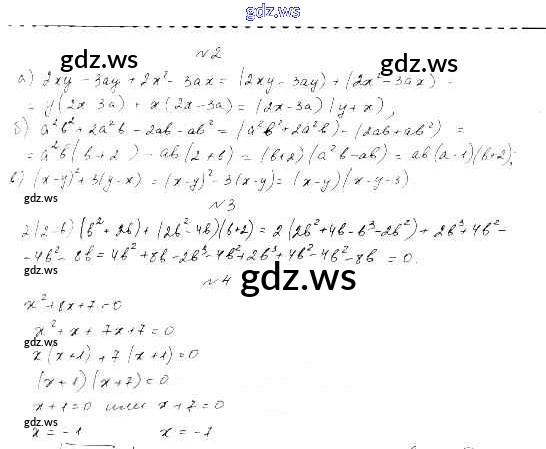 gdz.ws
№2
gdz.ws gdz.ws
а) 2xy - 3ay + 2x² - 3ax = (2xy - 3ay) + (2x² - 3ax) =
= y(2x 3a) + x(2x - 3a) = (2x - 3a)(y + x),
gdz.ws
б) a²b² + 2a²b - 2ab - ab² = (a²b² + 2a²b) - (2ab + ab²) =
= a²b(b + 2) - ab(2 + b) = (b + 2)(a²b - ab) = ab(a - 1)(b + 2);
в) (x - y)² + 3(y - x) = (x - y)² - 3(x - y) = (x - y)(x - y - 3)
gdz.ws
№3
2(2 - b)(b² + 2b) + (2b² - 4b)(b + 2) = 2(2b² + 4b - b³ - 2b²) + 2b³ + 4b² -
- 4b² - 8b = 4b² + 8b - 2b³ - 4b² + 2b³ + 4b² - 4b² - 8b = 0.
gdz.ws
№4
gdz.ws
x² + 8x + 7 = 0
x² + x + 7x + 7 = 0
gdz.ws
x(x + 1) + 7(x + 1) = 0
(x + 1)(x + 7) = 0
x + 1 = 0 или x + 7 = 0
gdz.ws
x = -1 x = -7